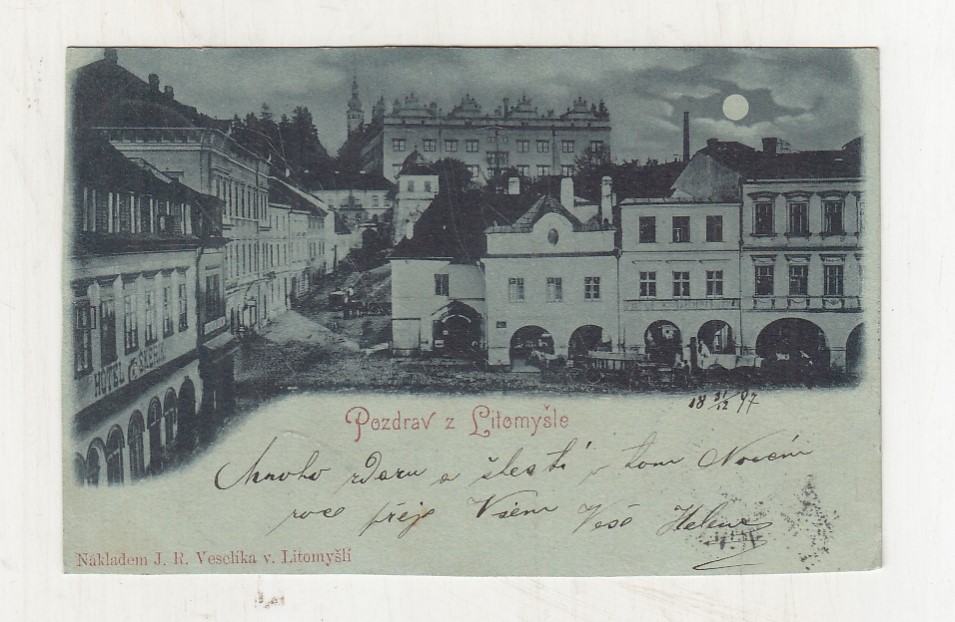 HOTEL
Pozdrav z Litomyšle
18 31/12 97
Mnoho zdaru a štestí v tom Novém
roce přeje Všem Vaše Helena
Nákladem J. R. Veselíka v. Litomyšli